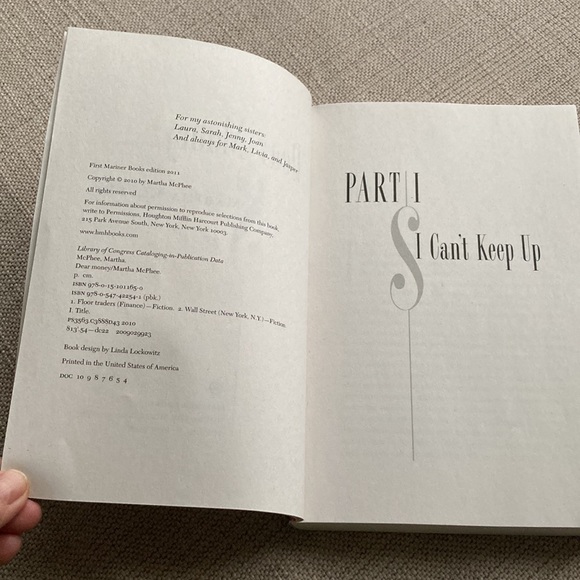 For my astonishing sisters:
Laura, Sarah, Jenny, Joan
And always for Mark, Livia, and Jasper
First Mariner Books edition 2011
Copyright © 2010 by Martha McPhee
All rights reserved
For information about permission to reproduce selections from this book,
write to Permissions, Houghton Mifflin Harcourt Publishing Company,
215 Park Avenue South, New York, New York 10003.
www.hmhbooks.com
Library of Congress Cataloging-in-Publication Data
McPhee, Martha.
Dear money/Martha McPhee.
p. cm.
ISBN 978-0-15-101165-0
ISBN 978-0-547-42254-1 (pbk.)
1. Floor traders (Finance)—Fiction. 2. Wall Street (New York, N.Y.)—Fiction.
I. Title.
PS3563.C3888D43 2010
813'.54—dc22 2009029923
Book design by Linda Lockowitz
Printed in the United States of America
DOC 10 9 8 7 6 5 4
PART I
I Can't Keep Up